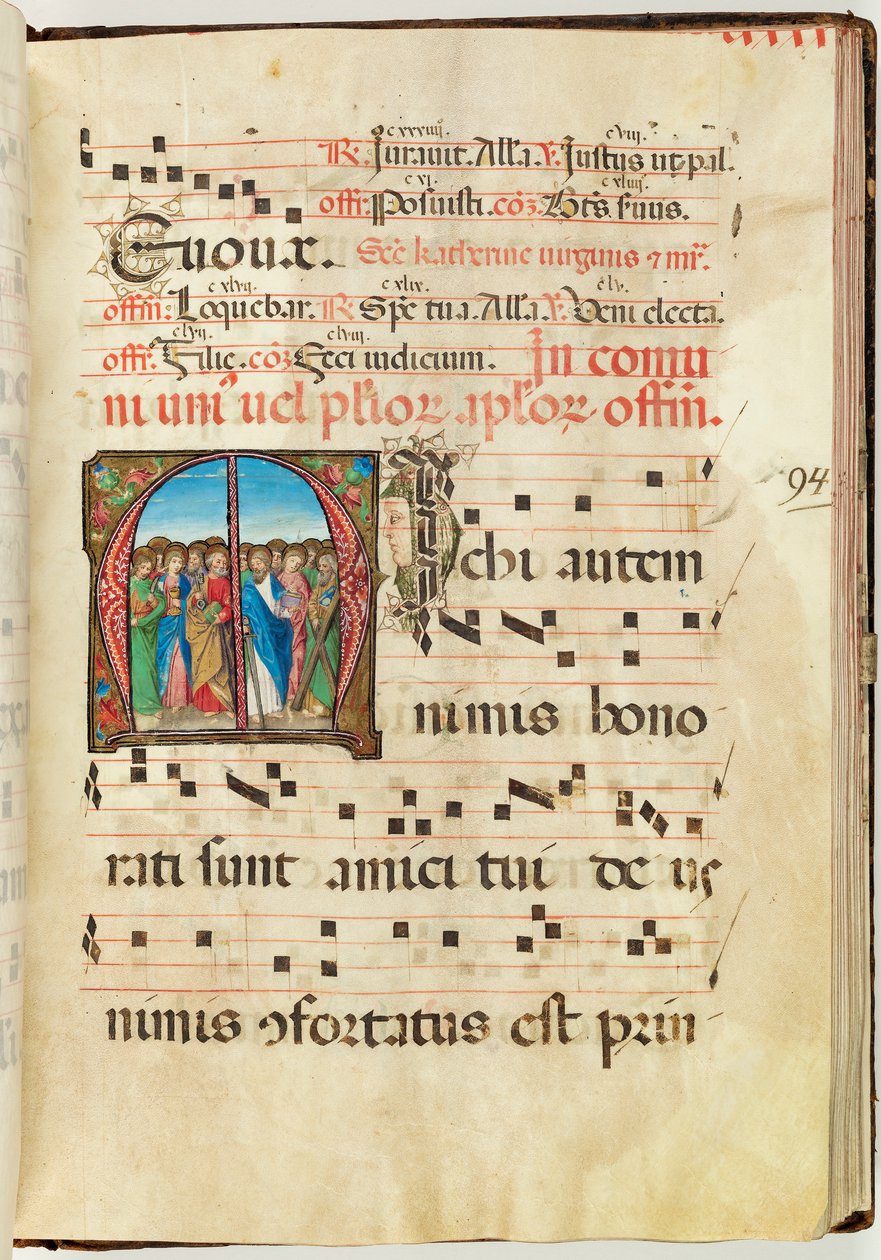 c xxxiiij. c viij.
R. Jurauit. All'a. V. Justus ut pal.
c vj. c xliiij.
offr: Posuisti. cōz. Bt's. suus.
Euouæ. Scē katherine uirginis ⁊ mr̄.
c xlvij. c xlix. c lv.
offm̄: Loquebar. R. Spē tua. All'a. V. Veni electa.
c lvij. c lviij.
offr: Filie. cōz. Feci iudicium. In comu
ni uni⁹ uel pl'ioꝝ apl'oꝝ offm̄.
Michi autem
94
nimis hono
rati sunt amici tui de us
nimis ꝯfortatus est prin